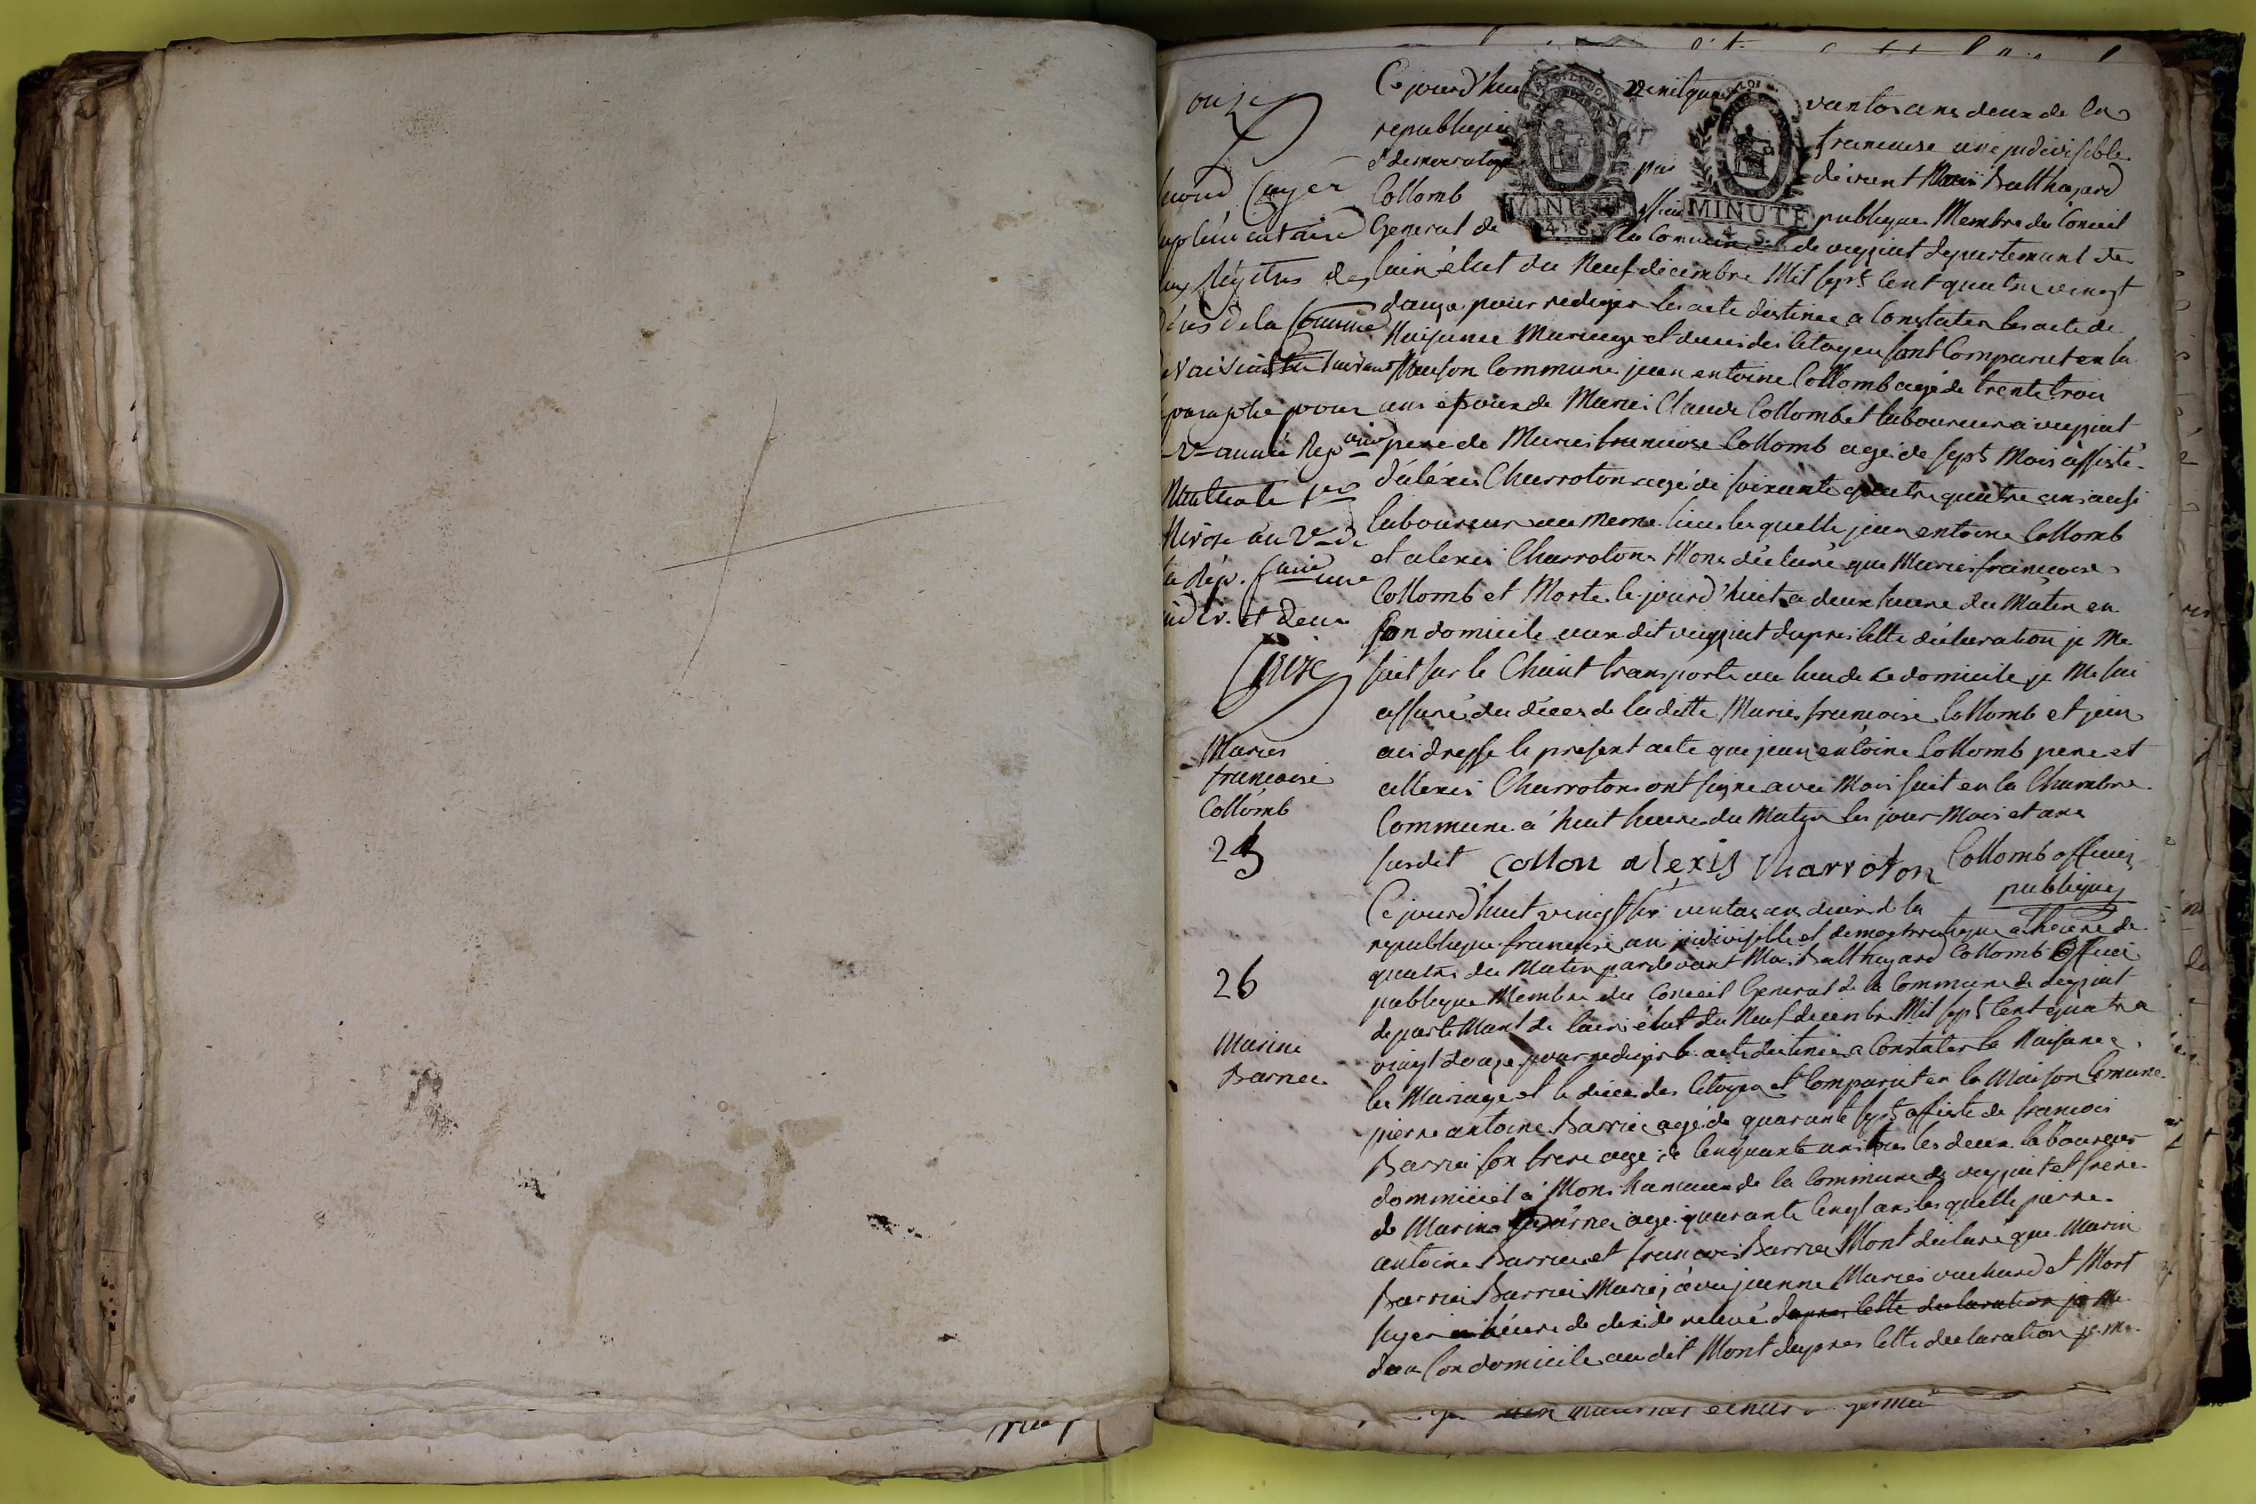 onze
second Cayer
suplémentaire
aux Régitres des
Décès de la Commune
de Vaisiat
paraphé pour
2e année Rep
Nantua le 1er
Nivose an 2e de
la Rép. française
indiv. et Dem
Ce jourd'hui vinitquatre vantos ans deux de la
republique francuise une indivisible
et democratique par devant Moi Balthazard
Collomb officier publique Membre du Conseil
General de la Commune de veyziat departemant de
lain élut du Neuf décembre Mil sept Cent quatre vingt
douze pour rediger les acte destinée a Constater les acte de
Naisance Mariage et deces des Citoyen sont Comparut en la
Maison Commune jean antoine Collomb agé de trente troi
ans épouxe de Marie Claude Collombet laboureur a veyziat
pere de Marie francoise Collomb agé de sept Mois assisté
d'aléxis Charroton agé de soixante quatre quatre ans ausi
laboureur au meme lieu les quelle jean antoine Collomb
et alexis Charroton M'ons déclaré que Marie francoise
Collomb et Morte le jourd'huit a deux heure du Matin en
son domicile aux dit veyziat dapres cette déclaration je Me
suit sur le Chant transporté au lieu de ce domicile je Me sui
assuré du déces de la ditte Marie francoise Collomb et jeus
ais dressé le present acte que jean antoine Collomb pere et
allexis Charroton ont signe avec Moi fait en la Chambre
Commune a huit heure du Matin les jour Mois et ans
susdit Collon alexis Charroton Collomb officier
publique
Marie
francoise
Collomb
25
Ce jourd'huit vingt six ventos ans deux de la
republique francaise une indivisible et democratique a lheure de
quatre du Matin pardevant Moi Balthazard Collomb officié
publique Membre du Conseil General de la Commune de veyziat
departeMant de lain élut du Neuf decenbre Mil sept Cent quatre
vingt douze pour rediger les acte destinée a Constater la Naisance
les Mariage et le déces des Citoyen et Comparut en la Maison Comune
pierre antoine Barrie agé de quarante sept assiste de francois
Barrie son frere agé de Cinquante ans tous les deux laboureur
dommicié a Mons hamaux de la Commune de veyziat et frere
de Marin Barrie agé quarante Cinq ans les quelle pierre
antoine Barrie et francois Barrie Mont déclaré que Marin
Barrie Barrie Marié avec jeanne Marie vuchard et Mort
hyer a lheure de dix de relevé dapres cette declaration je me
dans son domicile au dit Mont dapres cette declaration je me
26
Marin
Barrie